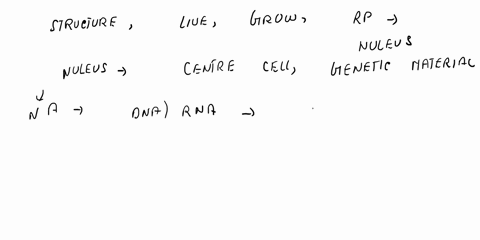 STRUCTURE, LIVE, GROW, RP →
NULEUS
NULEUS → CENTRE CELL, GENETIC MATERIAL
↓
NA → DNA) RNA →